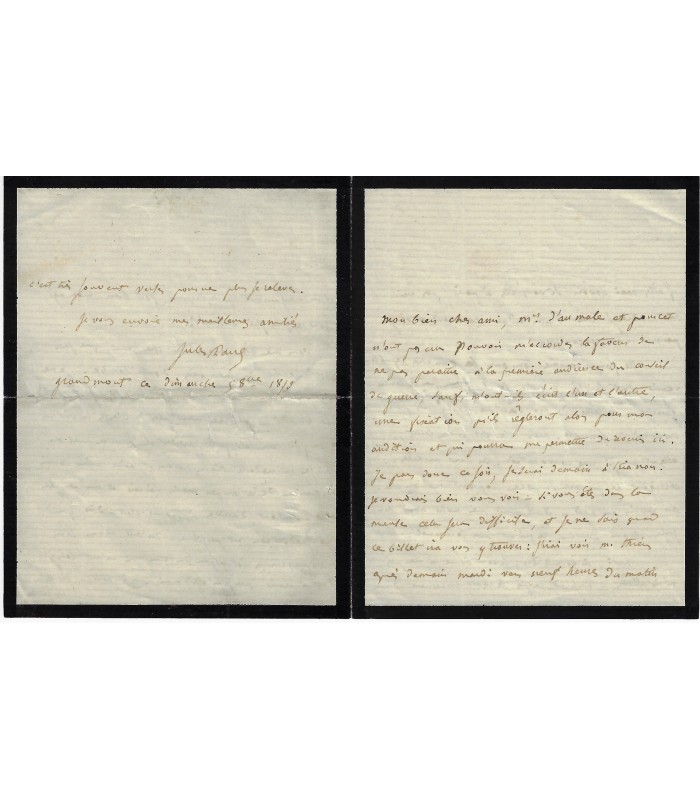 mon bien cher ami, Mrs d'aumale et pourcet
n'ont pas cru pouvoir m'accorder la faveur de
ne pas paraître à la première audience du conseil
de guerre, sauf, m'ont-ils écrit l'un et l'autre,
une fixation qu'ils règleront alors pour mon
audition et qui pourra me permettre de revenir ici.
Je pars donc ce soir, je serai demain à trianon.
Je voudrais bien vous voir – si vous êtes dans la
cela sera difficile, et je ne sais quand
ce billet ira vous y trouver: j'irai voir m. thiers
après demain mardi vers neuf heures du matin
c'est très souvent pour ne plus se relever.
Je vous envoie mes meilleures amitiés
Jules Favre
grandmont ce dimanche 5 8bre 187